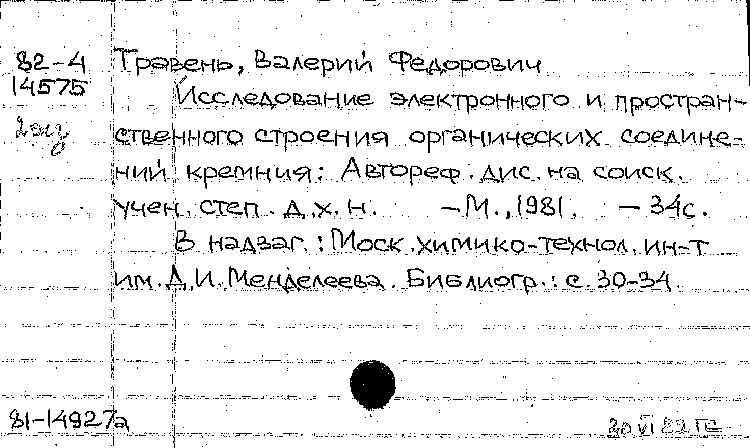 82-4
14575
2 экз
Травень, Валерий Федорович
Исследование электронного и простран-
ственного строения органических соедине-
ний кремния: Автореф. дис. на соиск.
учен. степ. д.х.н. – М., 1981. – 34с.
В надзаг.: Моск. химико-технол. ин-т
им. Д.И. Менделеева. Библиогр.: с. 30-34.
81-14927а
30 VI 82